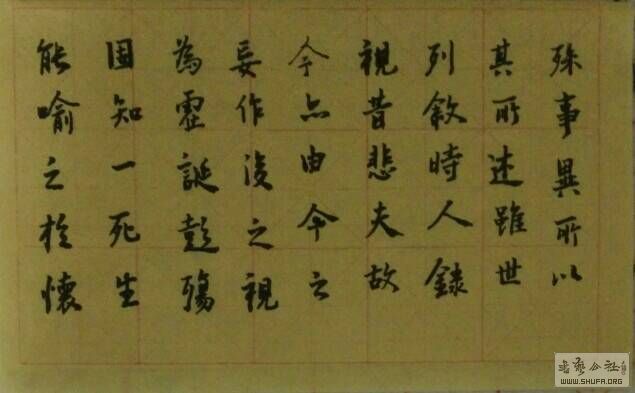 殊事異所以
其所述雖世
列敘時人錄
視昔悲夫故
今亦由今之
妄作後之視
為虛誕彭殤
固知一死生
能喻之於懷
WWW.SHUFA.ORG